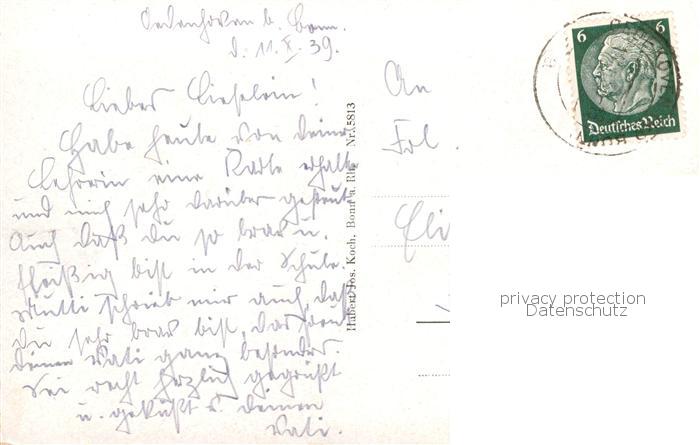 Oedenhoven b. Bonn.
d. 11.X.39.
Liebes Lieselein!
Habe heute von deiner
Lehrerin eine Karte erhalt.
und mich sehr darüber gefreut
Auch daß du so brav u.
fleißig bist in der Schule.
Mutti schrieb mir auch, daß
du sehr brav bist, das freut
deinen Vati ganz besonders.
Sei recht herzlich gegrüßt
u. geküßt v. deinem
Vati.
Hubert Jos. Koch, Bonn a. Rh. Nr. 5813
An
Frl.
Eli
6 6
Deutsches Reich
privacy protection
Datenschutz